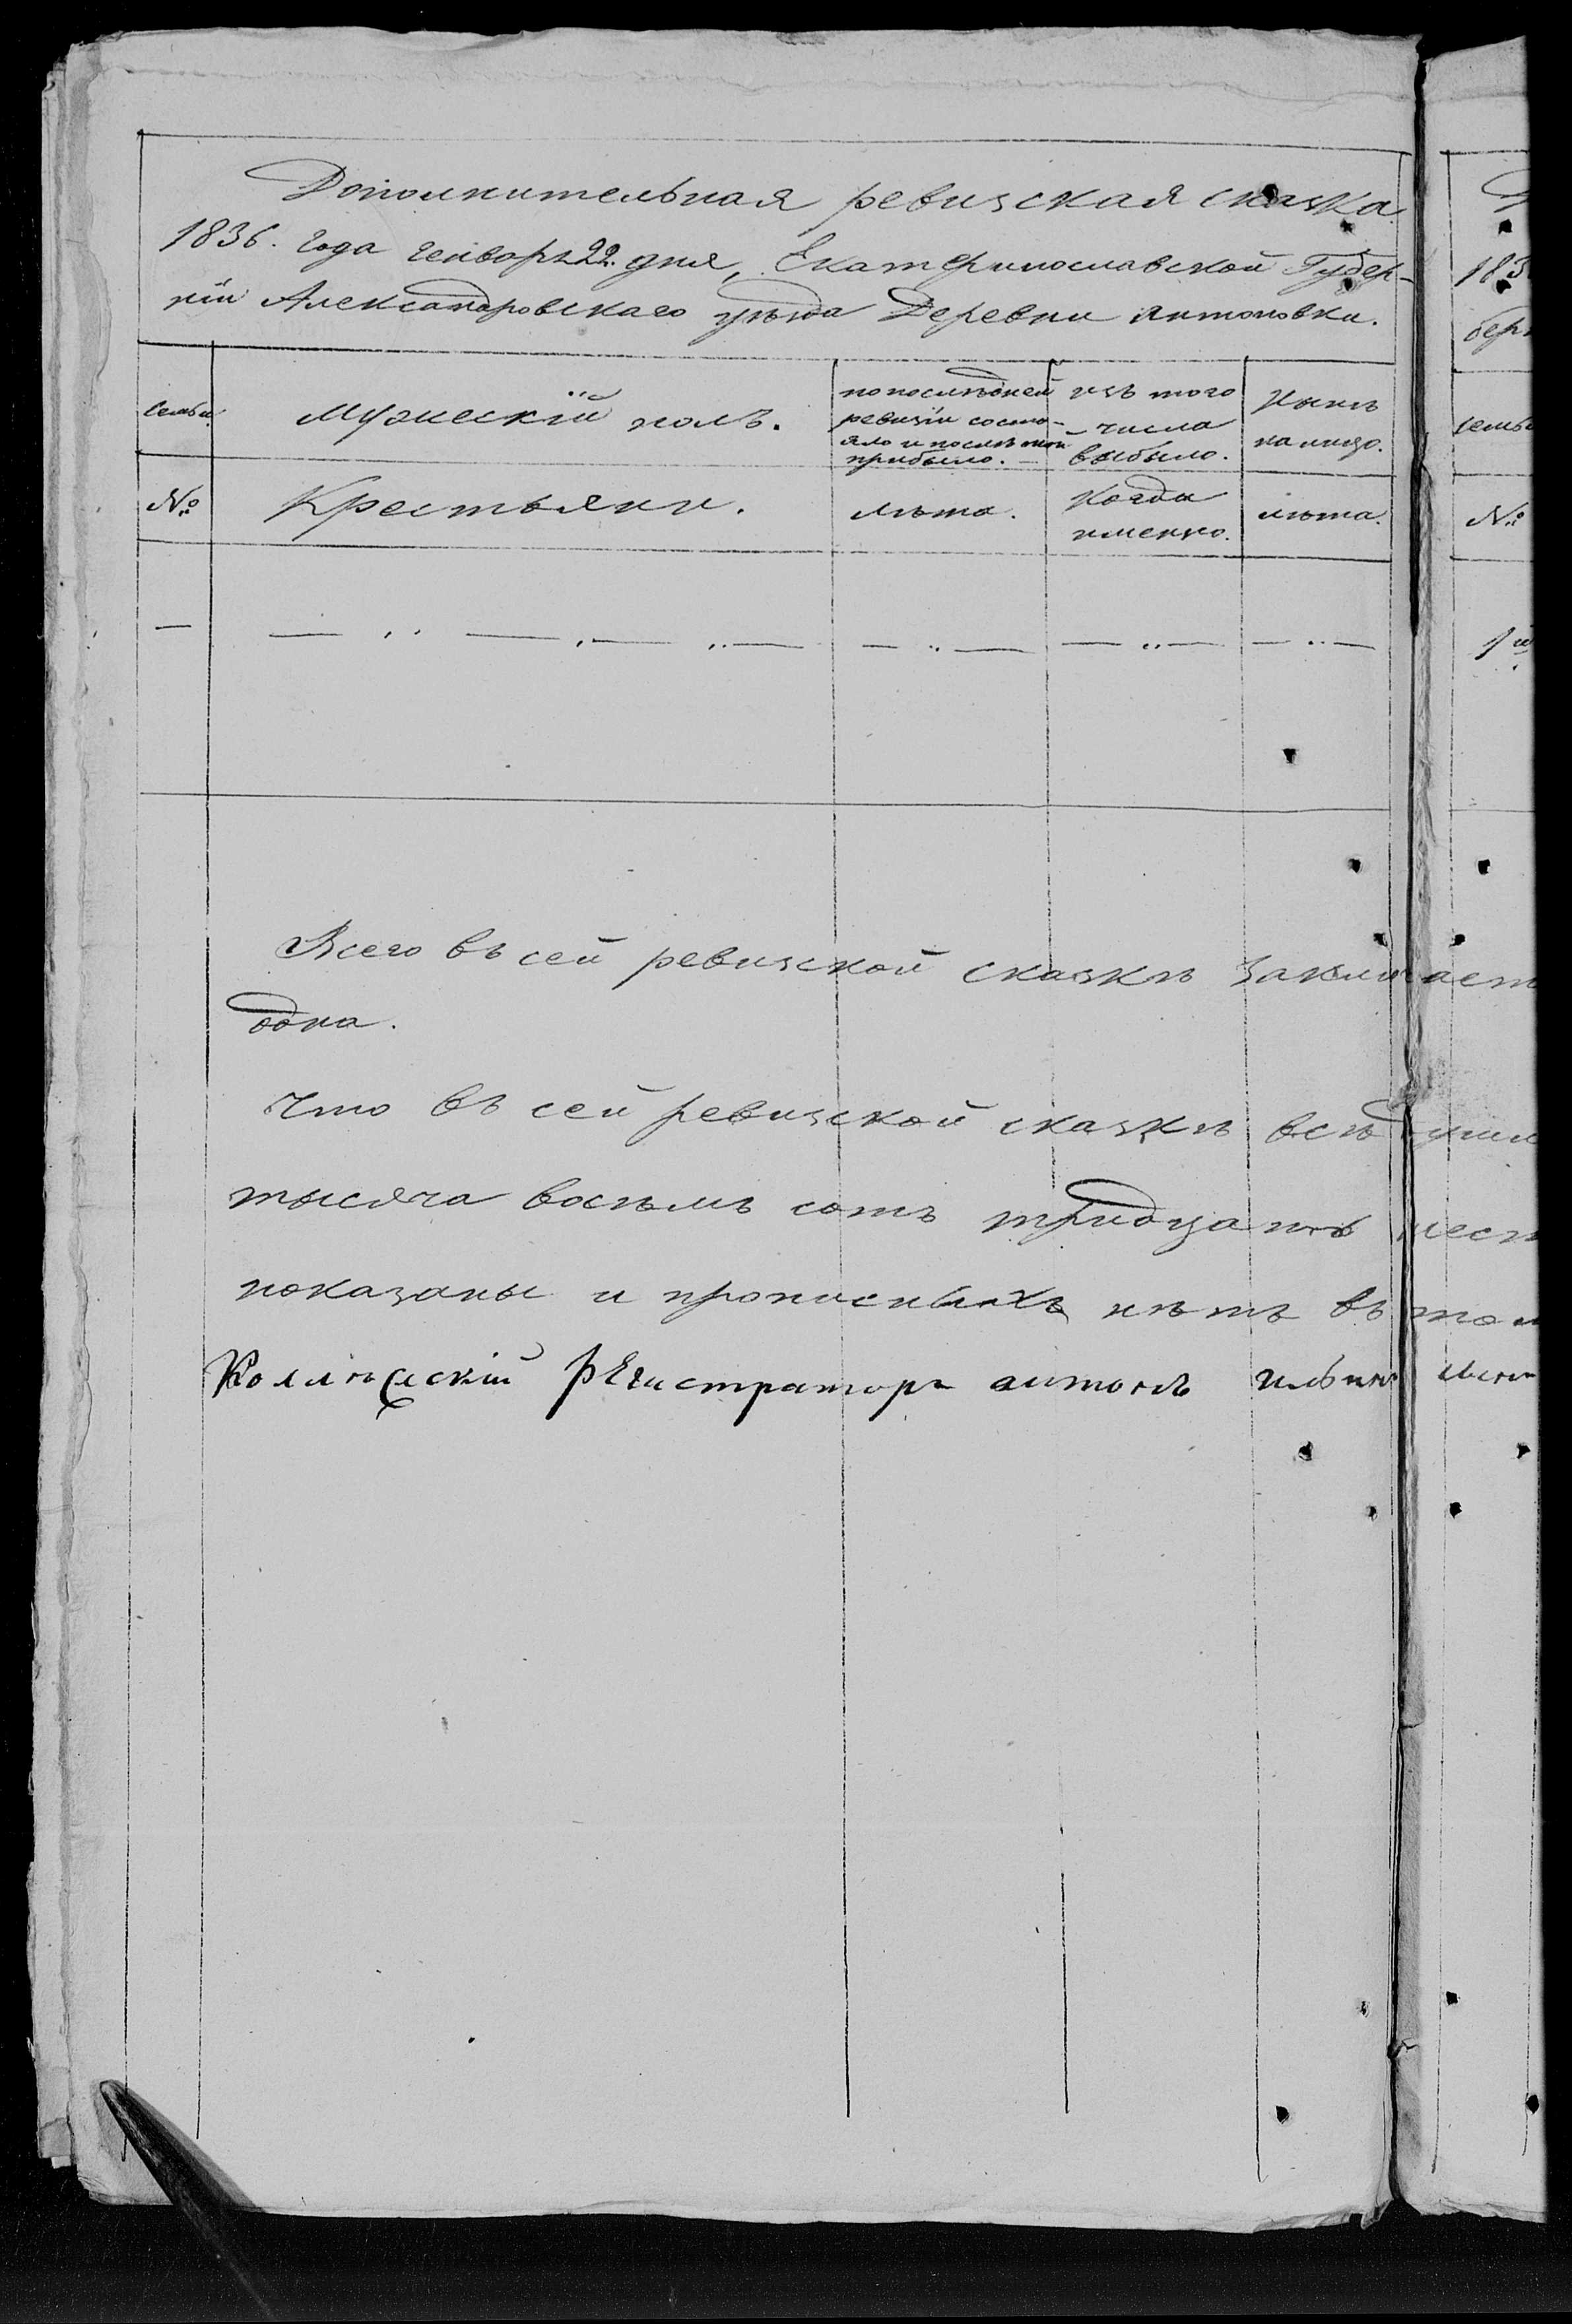 Дополнительная ревизская сказка
1836. Года генваря 22. дня, Екатеринославской Губер-
ніи Александровскаго уѣзда Деревни Антоновки.
семьи. Мужескій полъ. по послѣдней ревизіи состо-яло и послѣ того прибыло. изъ того числа выбыло. Нынѣ на лицо.
№ Крестьяни. лѣта. Когда именно. лѣта.
Всего въ сей ревизской сказкѣ заключает
одна.
Что въ сей ревизской сказкѣ всѣ души
тысяча восемь сотъ тридцать шест
показаны и прописныхъ нѣтъ въ том
Коллежскій Регистраторъ антонъ ильинъ
183
берн
семьи
№
1й